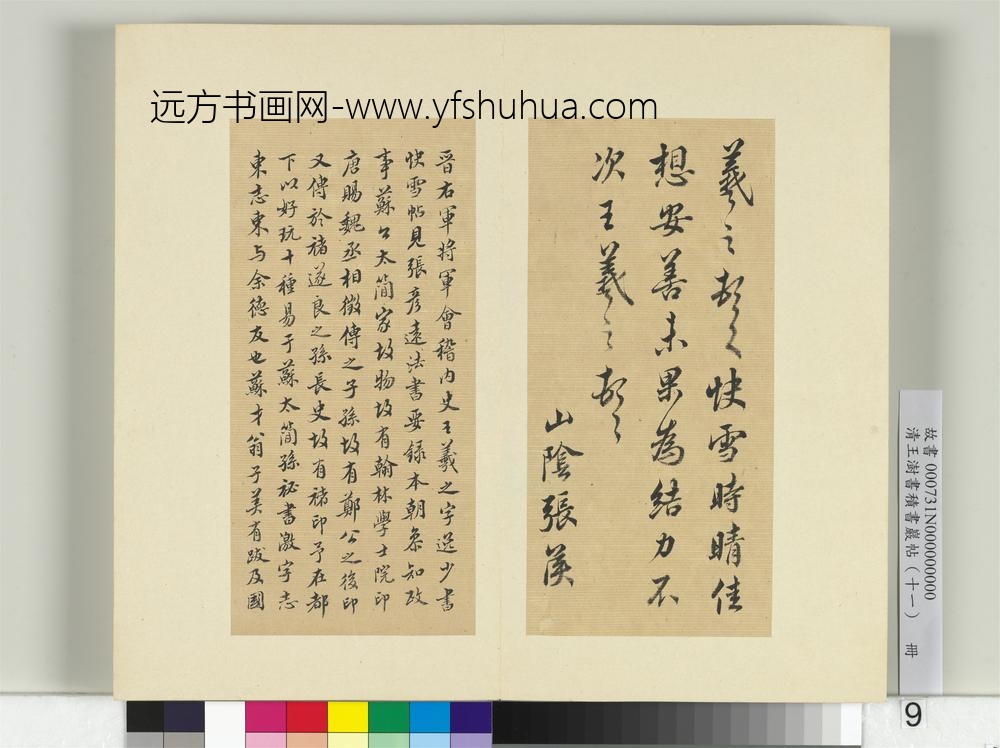 远方书画网-www.yfshuhua.com
羲之頓首快雪時晴佳
想安善未果為結力不
次王羲之頓首
山陰張侯
晉右軍將軍會稽內史王羲之字逸少書
快雪帖見張彥遠法書要錄本朝參知政
事蘇公太簡家故物故有翰林學士院印
唐賜魏丞相徵傳之子孫故有鄭公之後印
又傳於褚遂良之孫長史故有褚印予在都
下以好玩十種易于蘇太簡孫祕書激字志
東志東与余德友也蘇才翁子美有跋及國
故書 000731N000000000
清王澍書積書巖帖（十一） 冊
9